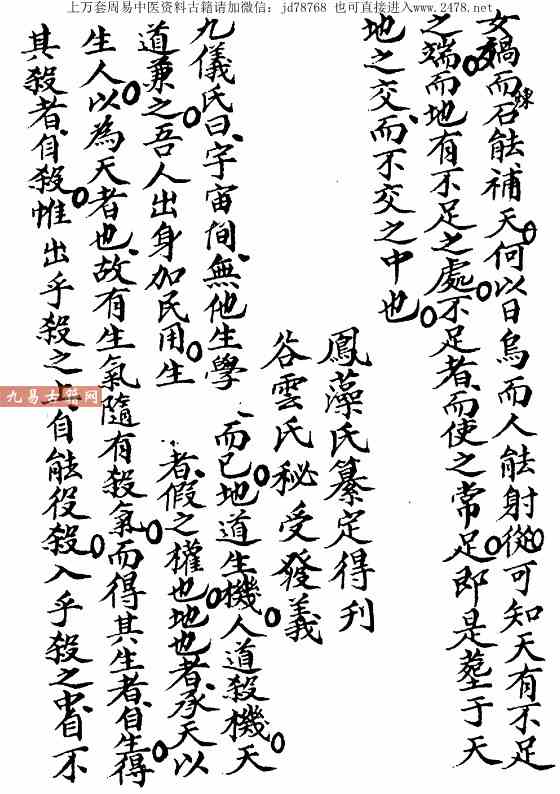 上万套周易中医资料古籍请加微信：jd78768 也可直接进入www.2478.net
女媧而石能補天何以日烏而人能射從可知天有不足
煉
之端而地有不足之處不足者而使之常足即是塟于天
地之交而不交之中也
鳳藻氏纂定得刋
谷雲氏秘受發義
九儀氏曰宇宙間無他生學而已地道生機人道殺機天
道兼之吾人出身加民用生者假之權也地也者承天以
生人以為天者也故有生氣隨有殺氣而得其生者自生得
其殺者自殺惟出乎殺之上自能役殺入乎殺之中自不
九易古籍网